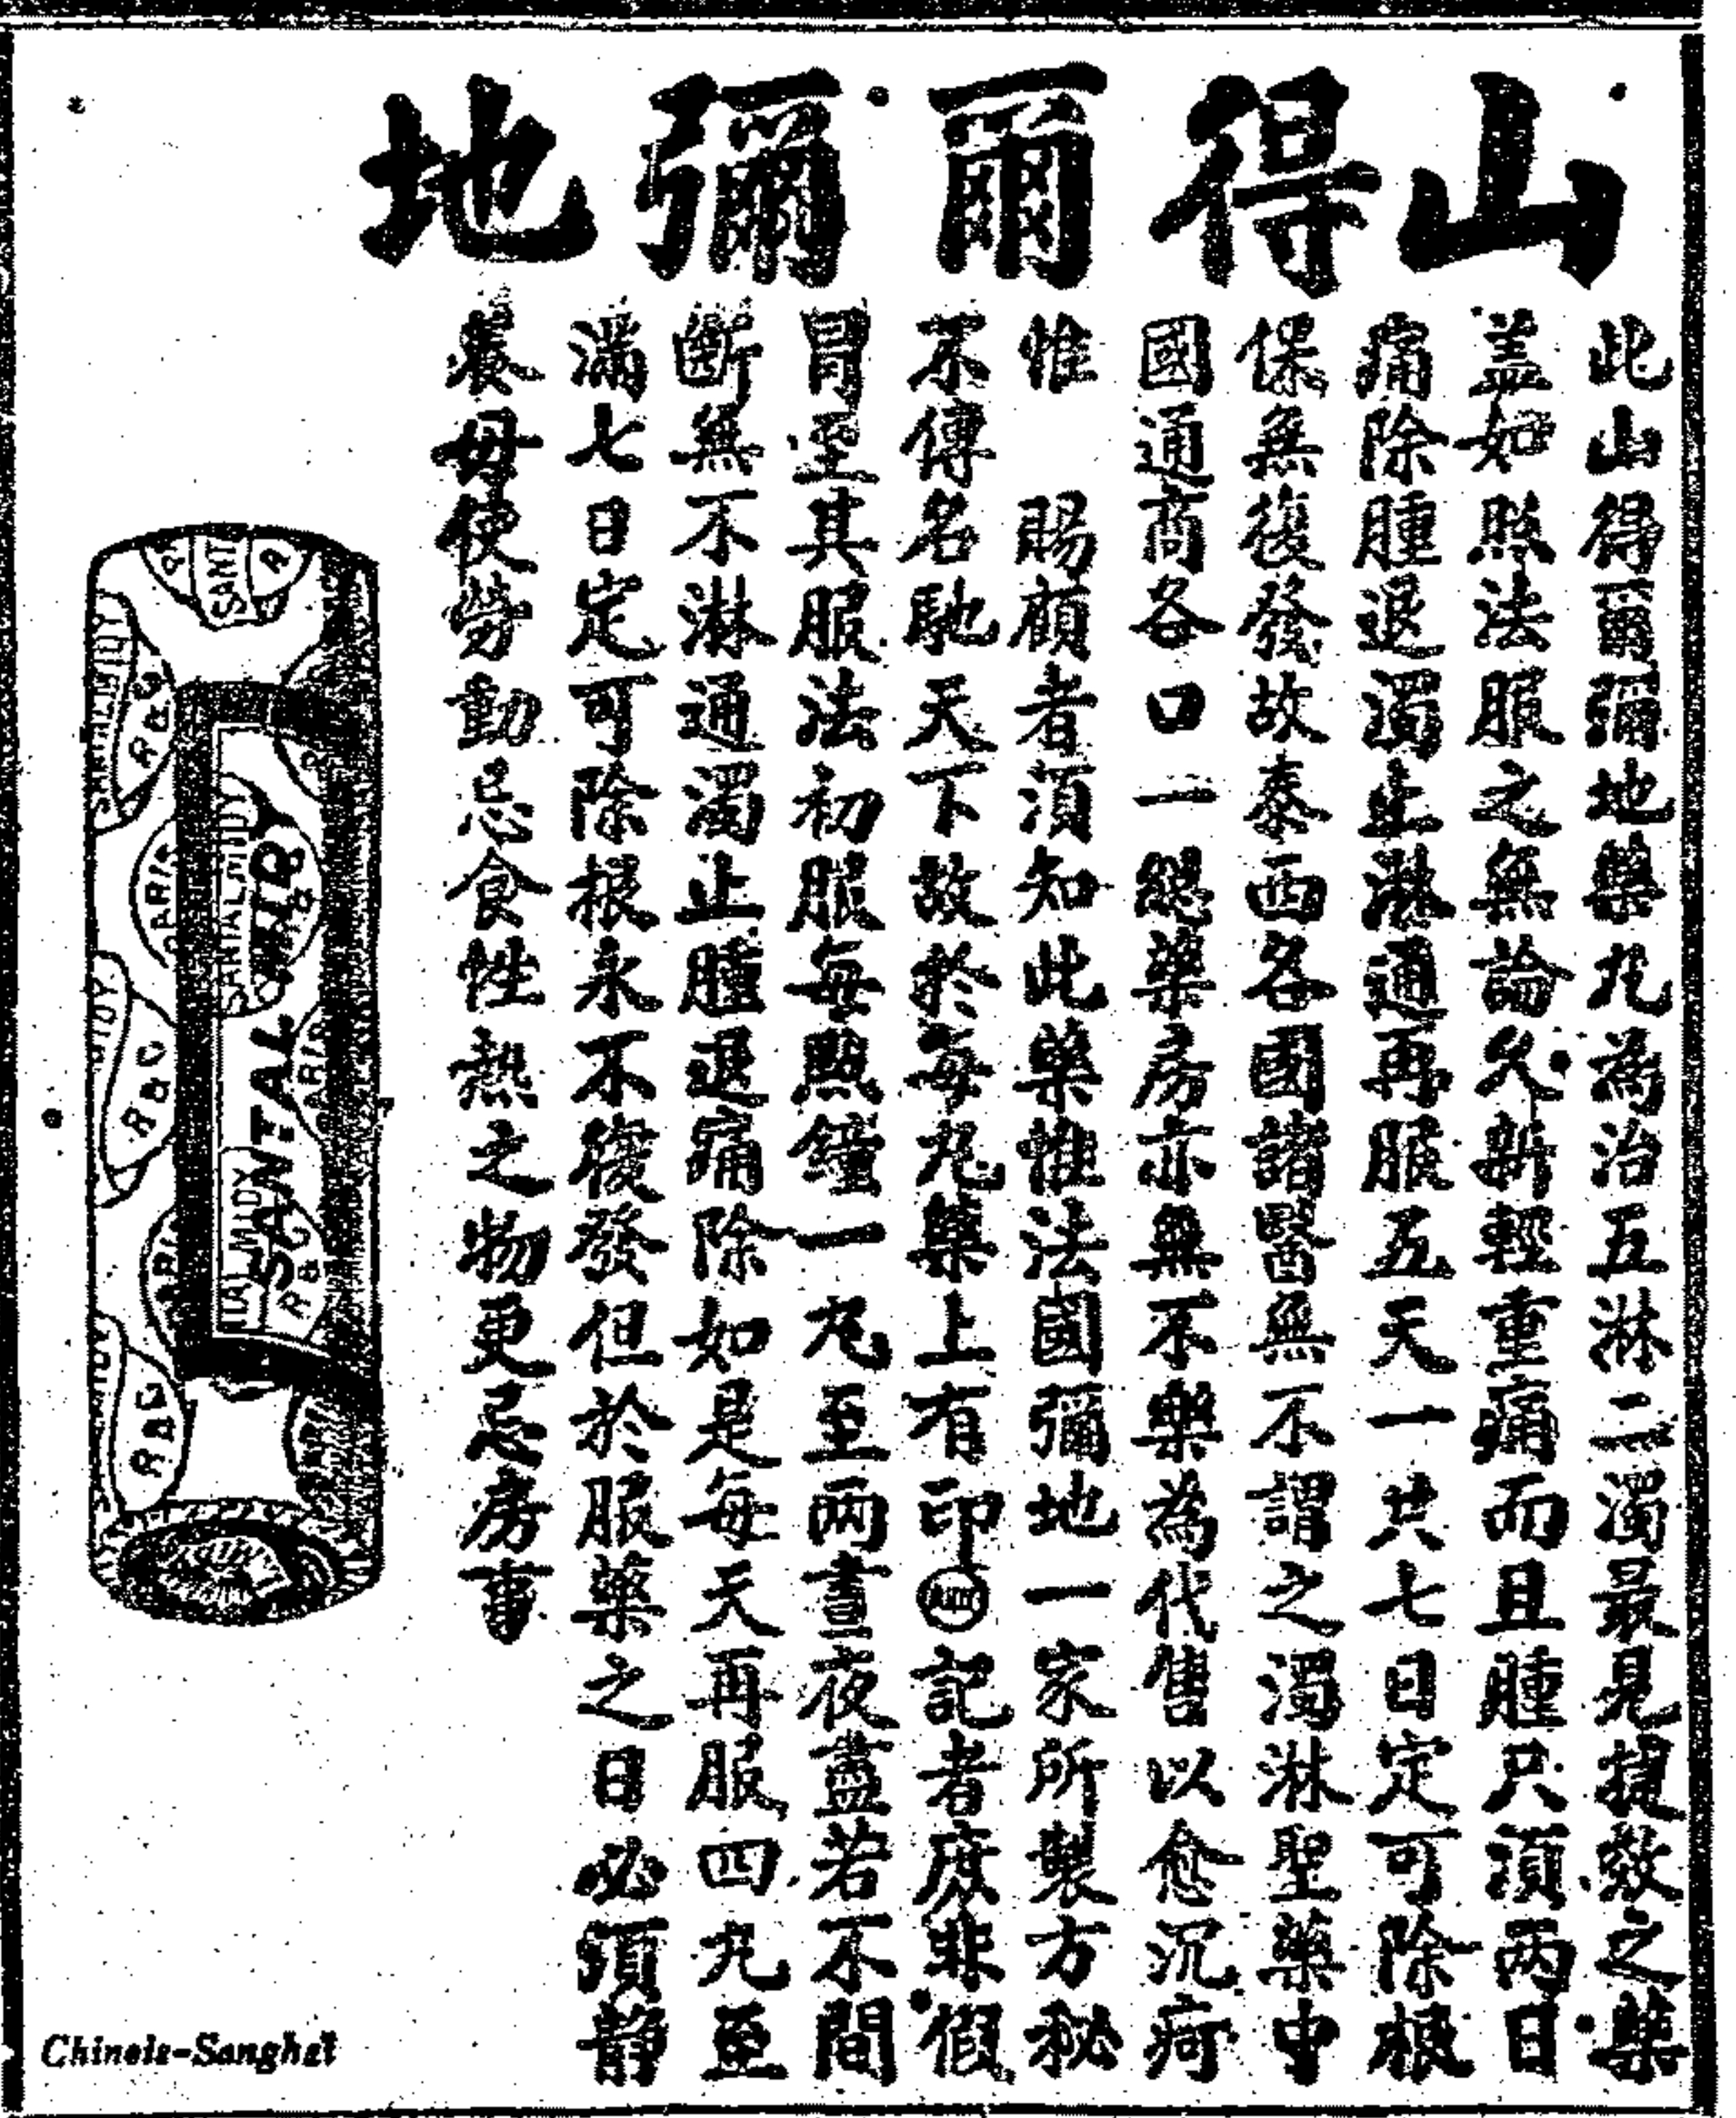 山得爾彌地
此山得爾彌地藥丸為治五淋二濁最見捷效之藥
盖如照法服之無論久新輕重痛而且腫只須两日
痛除腫退濁止淋通再服五天一共七日定可除根
保無復發故泰西各國諸醫無不謂之濁淋聖藥中
國通商各口一總藥房亦無不樂為代售以愈沉疴
惟 賜顧者須知此藥惟法國彌地一家所製方秘
不傳名馳天下故於每丸藥上有印記者庶非假
冒至其服法初服每點鐘一丸至两晝夜盡若不間
斷無不淋通濁止腫退痛除如是每天再服四丸至
滿七日定可除根永不復發但於服藥之日必須靜
養毋使勞動忌食性熱之物更忌房事
SANTAL
MIDY
SANTAL MIDY
R & C
PARIS
Chinois-Sanghaï